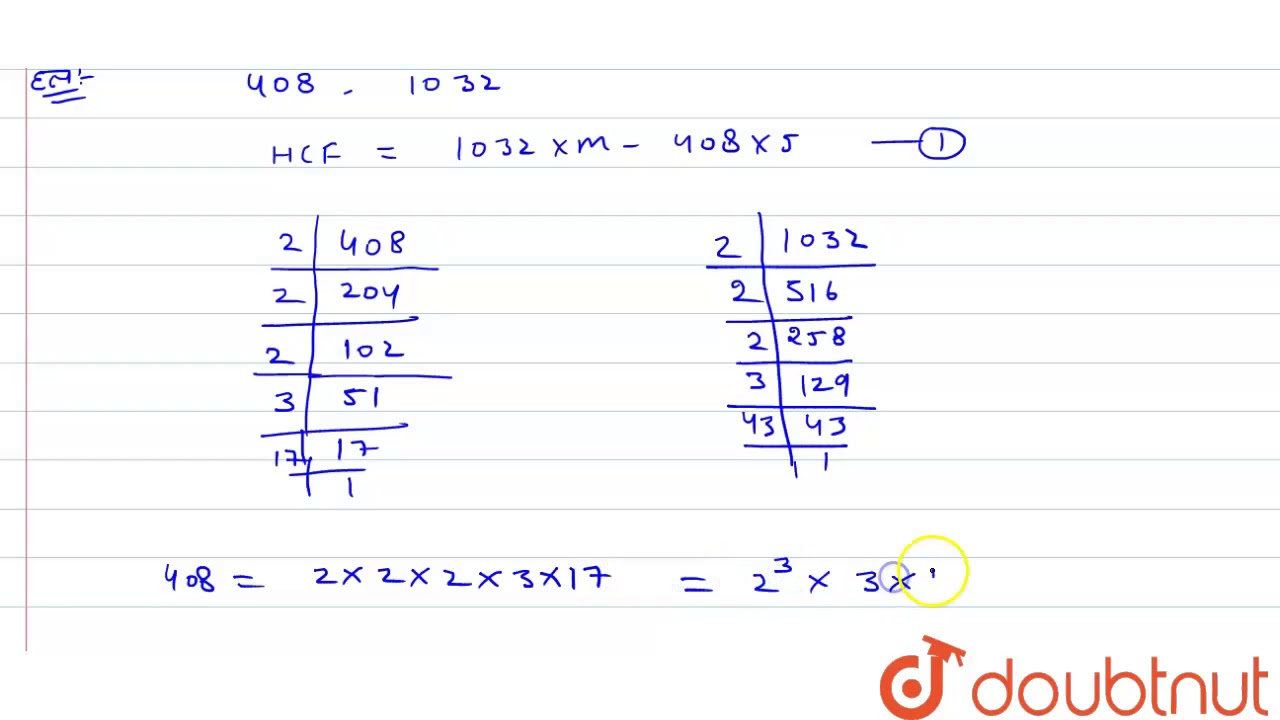 हल:-
408 , 1032
HCF = 1032 × m - 408 × 5 — 1
2 | 408
2 | 204
2 | 102
3 | 51
17 | 17
1
2 | 1032
2 | 516
2 | 258
3 | 129
43 | 43
1
408 = 2 × 2 × 2 × 3 × 17 = 2³ × 3 ×
doubtnut